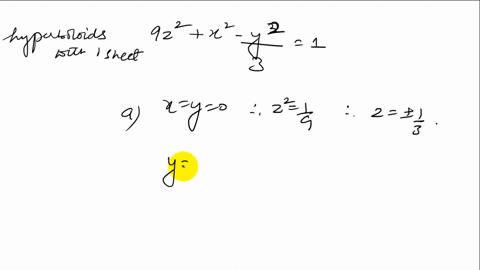 hyperboloids with 1 sheet 9z² + x² - y²/3 = 1
a) x=y=0 ∴ z²=1/9 ∴ z=±1/3.
y=